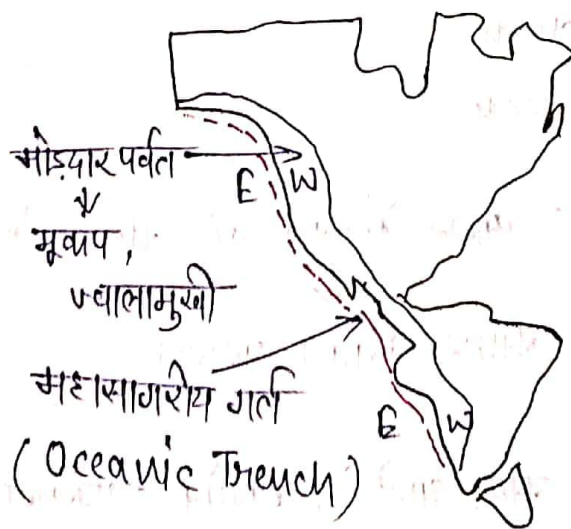 मोड़दार पर्वत
E W
भूकंप,
ज्वालामुखी
महासागरीय गर्त
(Oceanic Trench)
E W